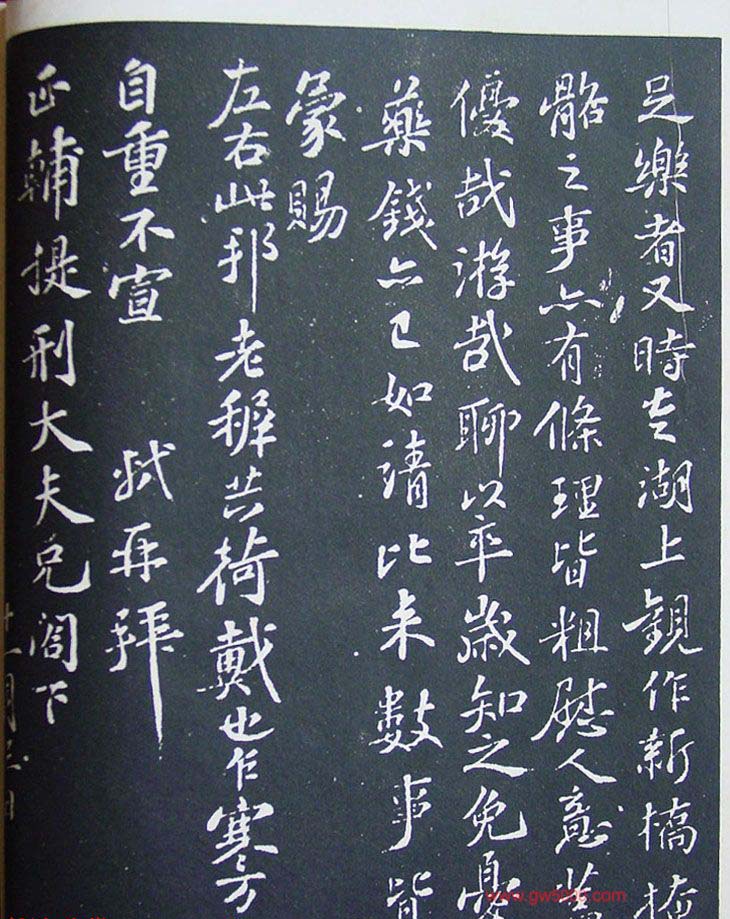 足樂者又時走湖上觀作新橋掩
骼之事亦有條理皆粗慰人意蓋
優哉游哉聊以卒歲知之免憂
藥錢亦已如請比來數事皆
蒙賜
左右此邦老穉共荷戴也乍寒万
自重不宣 軾再拜
正輔提刑大夫兄閤下
十一月 日
www.gw5000.com